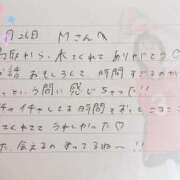 月26日 Mさんへ
鳥取から、来てくれて ありがとう♡
お話 おもしろくて、時間すぎるのが
あっという間に感じちゃった!!
イチャイチャしてる時間も
くれて うれしかった♡
また、会えるの まってるね〜!!